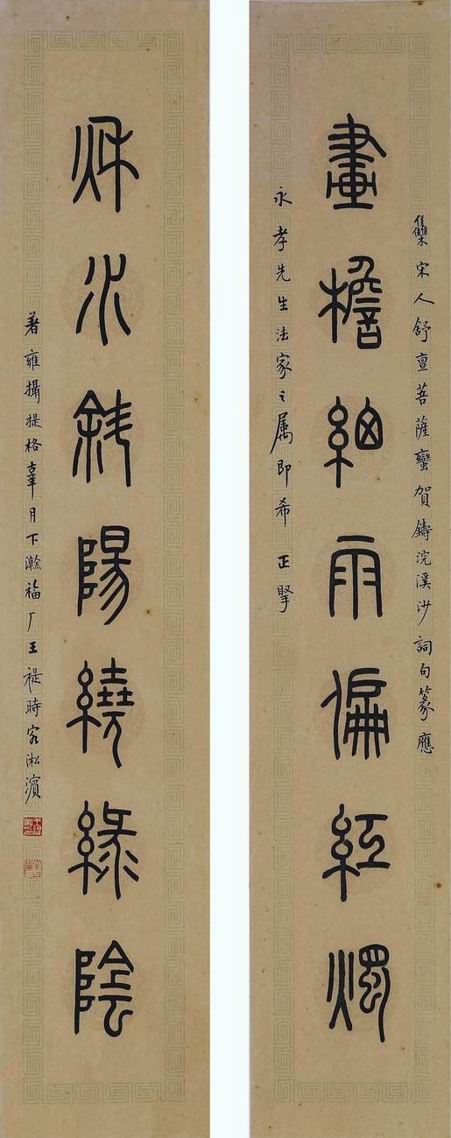 集宋人舒亶菩薩蠻賀鑄浣溪沙詞句篆應
畫檐細雨偏紅燭
永孝先生法家之属即希正擥
秌水斜陽繞綠陰
著雍攝提格辜月下澣福厂王禔時客淞濱